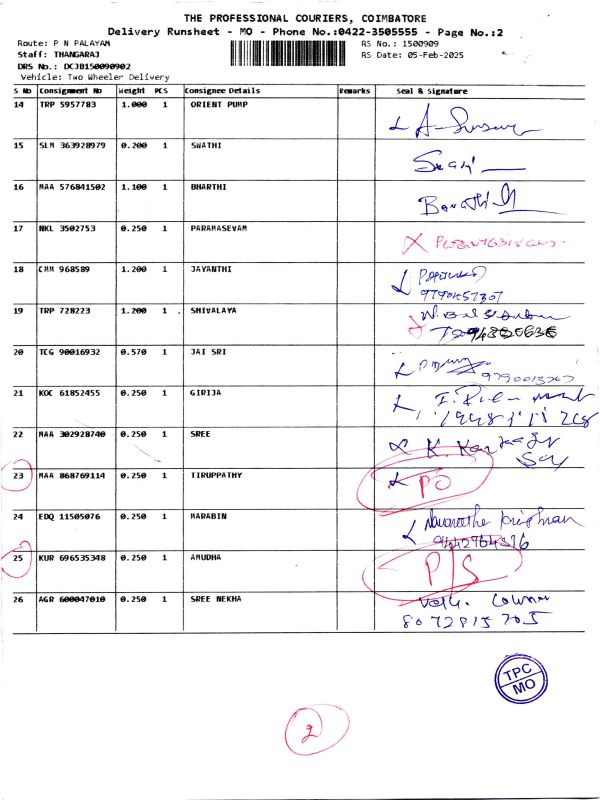 THE PROFESSIONAL COURIERS, COIMBATORE
Delivery Runsheet - MO - Phone No.:0422-3505555 - Page No.:2
Route: P N PALAYAM RS No.: 1500909
Staff: THANGARAJ RS Date: 05-Feb-2025
DRS No.: DCJB150090902
Vehicle: Two Wheeler Delivery
S No Consignment No Weight PCS Consignee Details Remarks Seal & Signature
14 TRP 5957783 1.000 1 ORIENT PUMP
15 SLM 363928979 0.200 1 SWATHI
16 MAA 576841502 1.100 1 BHARTHI
17 NKL 3502753 0.250 1 PARAMASEVAM
18 CMM 968589 1.200 1 JAYANTHI
19 TRP 728223 1.200 1 SHIVALAYA
20 TCG 90016932 0.570 1 JAI SRI
9790013767
21 KOC 61852455 0.250 1 GIRIJA
22 MAA 302928740 0.250 1 SREE
23 MAA 868769114 0.250 1 TIRUPPATHY PO
24 EDQ 11505076 0.250 1 MARABIN
25 KUR 696535348 0.250 1 AMUDHA P/S
26 AGR 600047010 0.250 1 SREE NEKHA
8072815705
TPC
MO
2